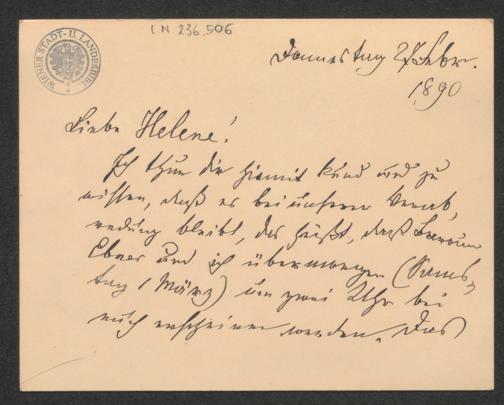 I.N. 236.506
WIENER STADT- U. LANDESBIBL.
Donnerstag 27 Febr.
1890
Liebe Helene!
Ich thue dir hiemit kund und zu
wissen, daß es bei unserer Verab,
redung bleibt, das heißt, daß Baronin
Ebner und ich übermorgen (Sams,
tag 1 März) um zwei Uhr bei
euch erscheinen werden. Das